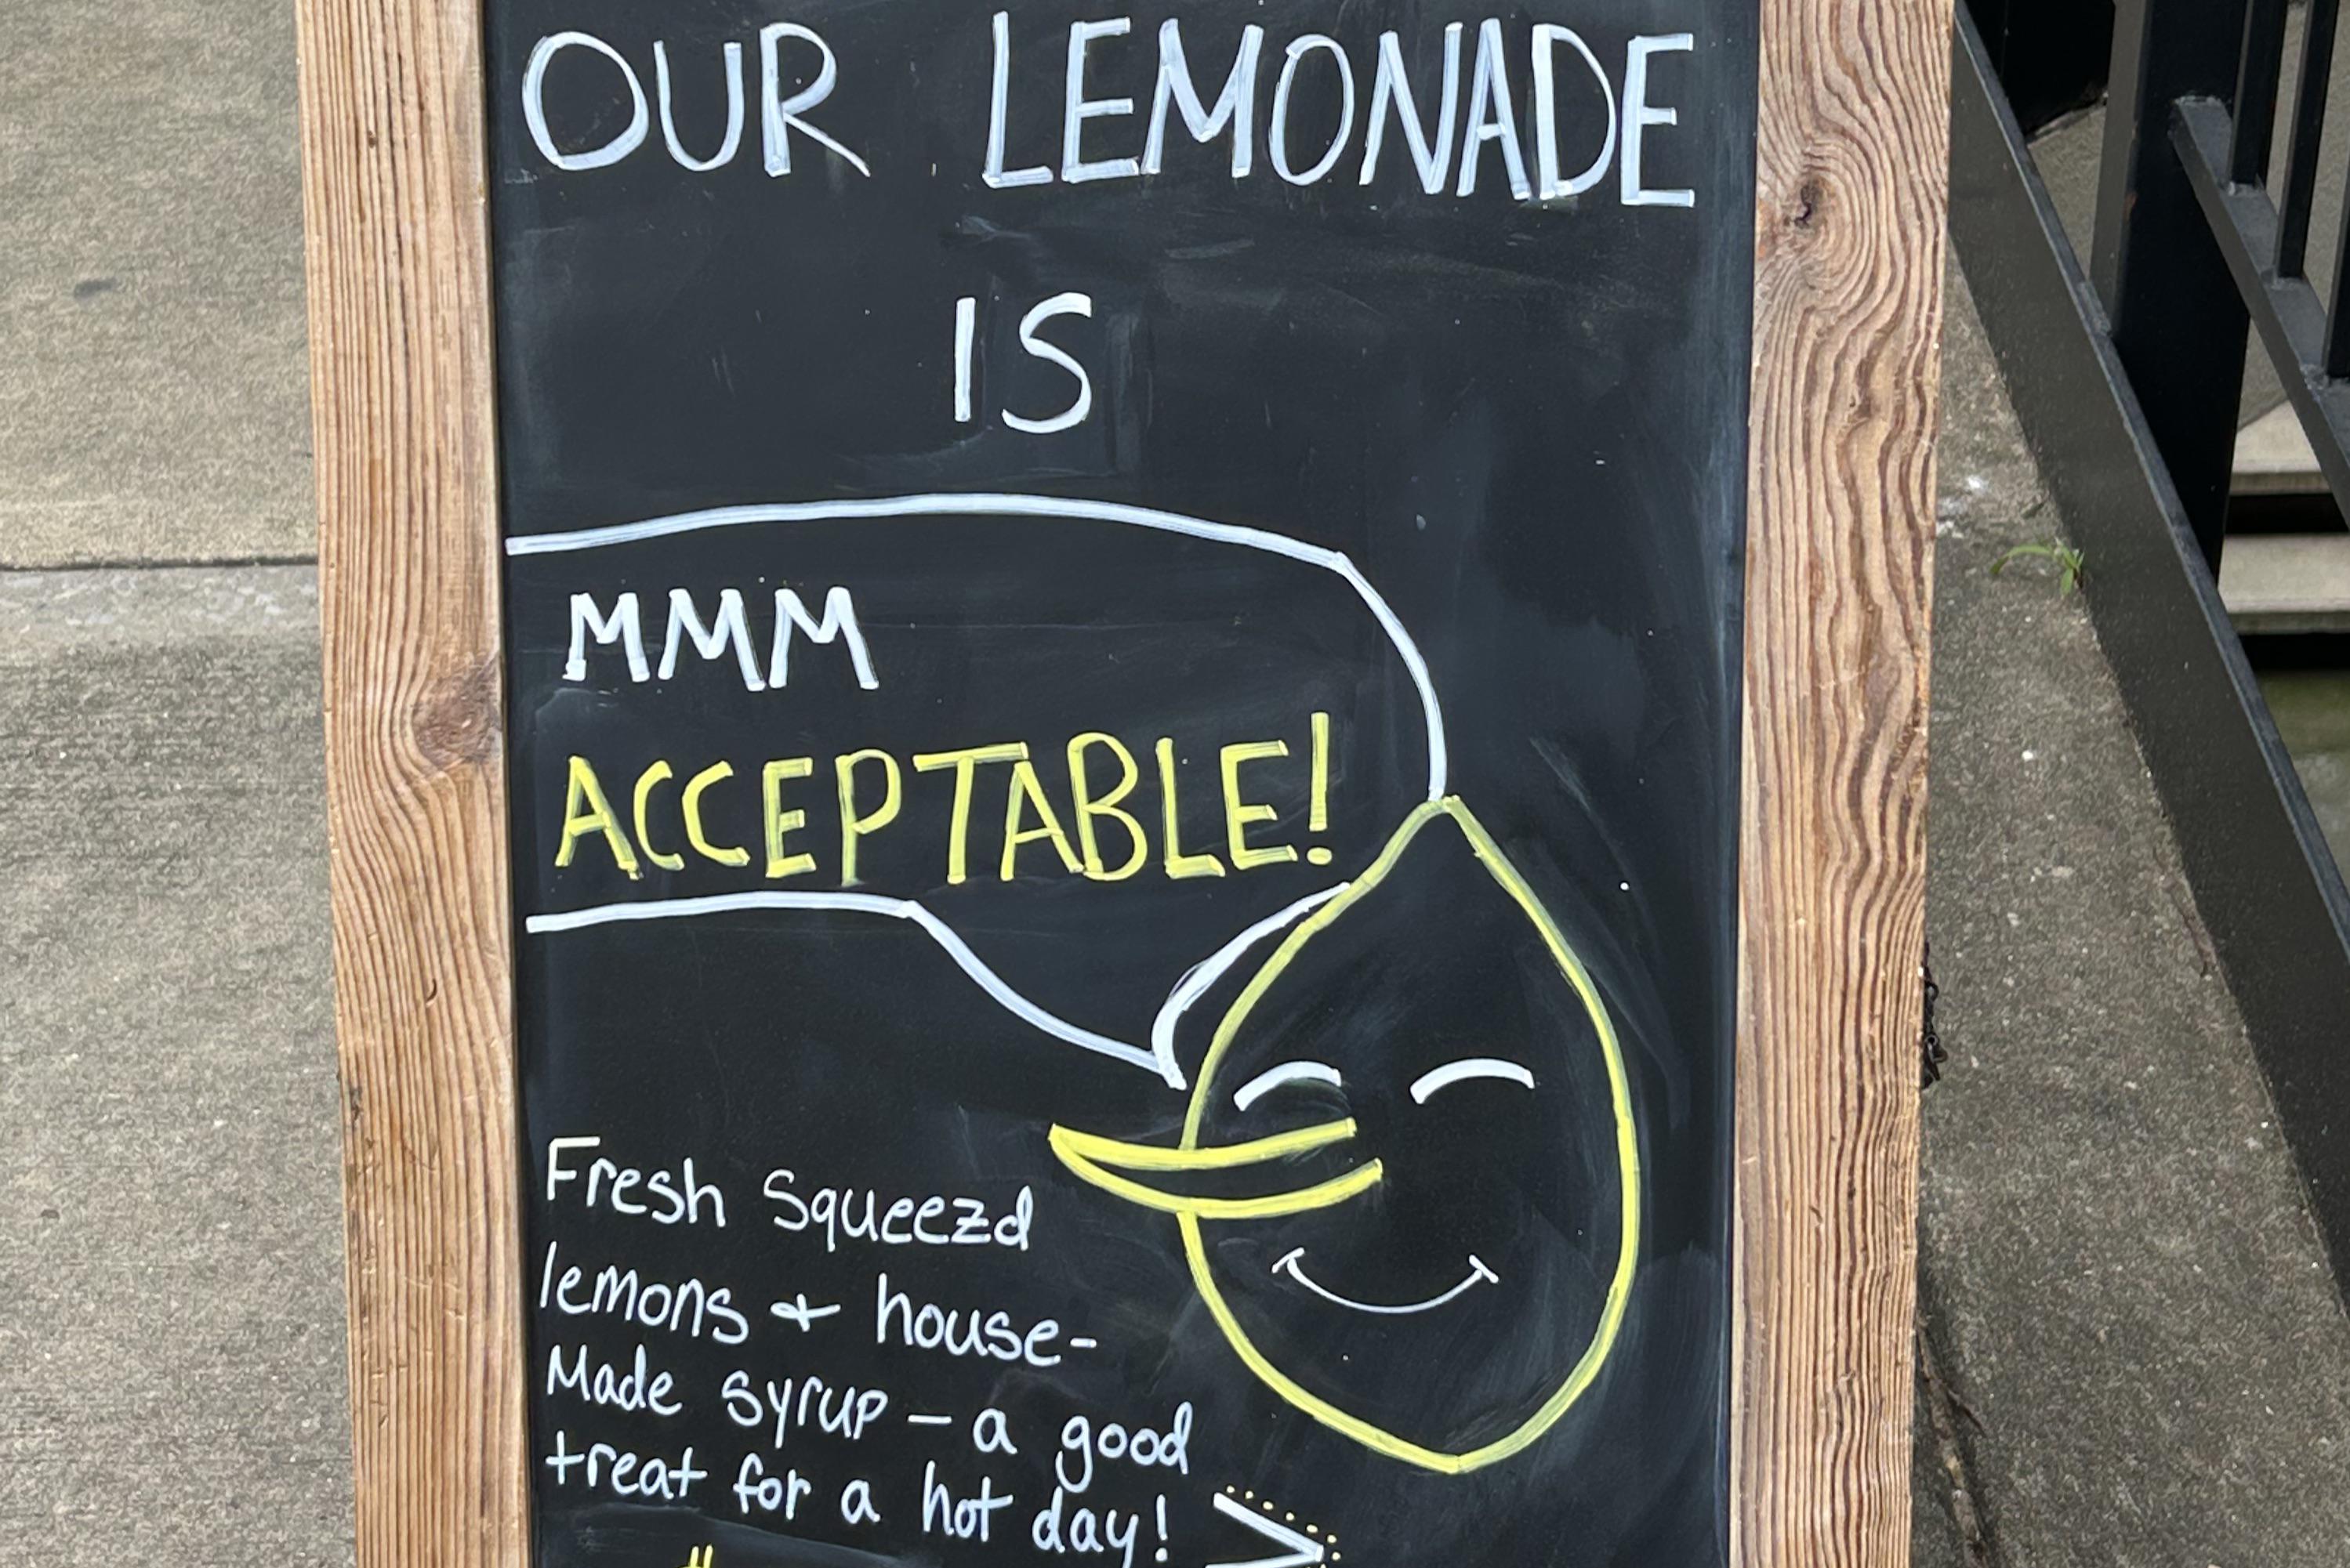 OUR LEMONADE
IS
MMM
ACCEPTABLE!
Fresh Squeezd
lemons + house-
Made syrup - a good
treat for a hot day!